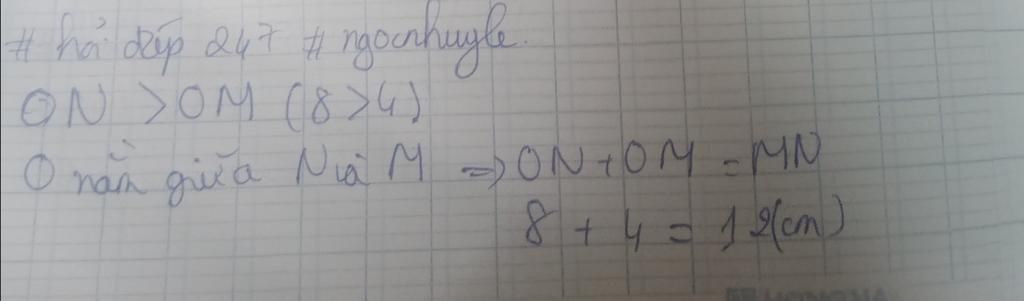 # hỏi đáp 247 # ngocnhuyle.
ON > OM (8 > 4)
O nằm giữa N và M => ON + OM = MN
8 + 4 = 12 (cm)